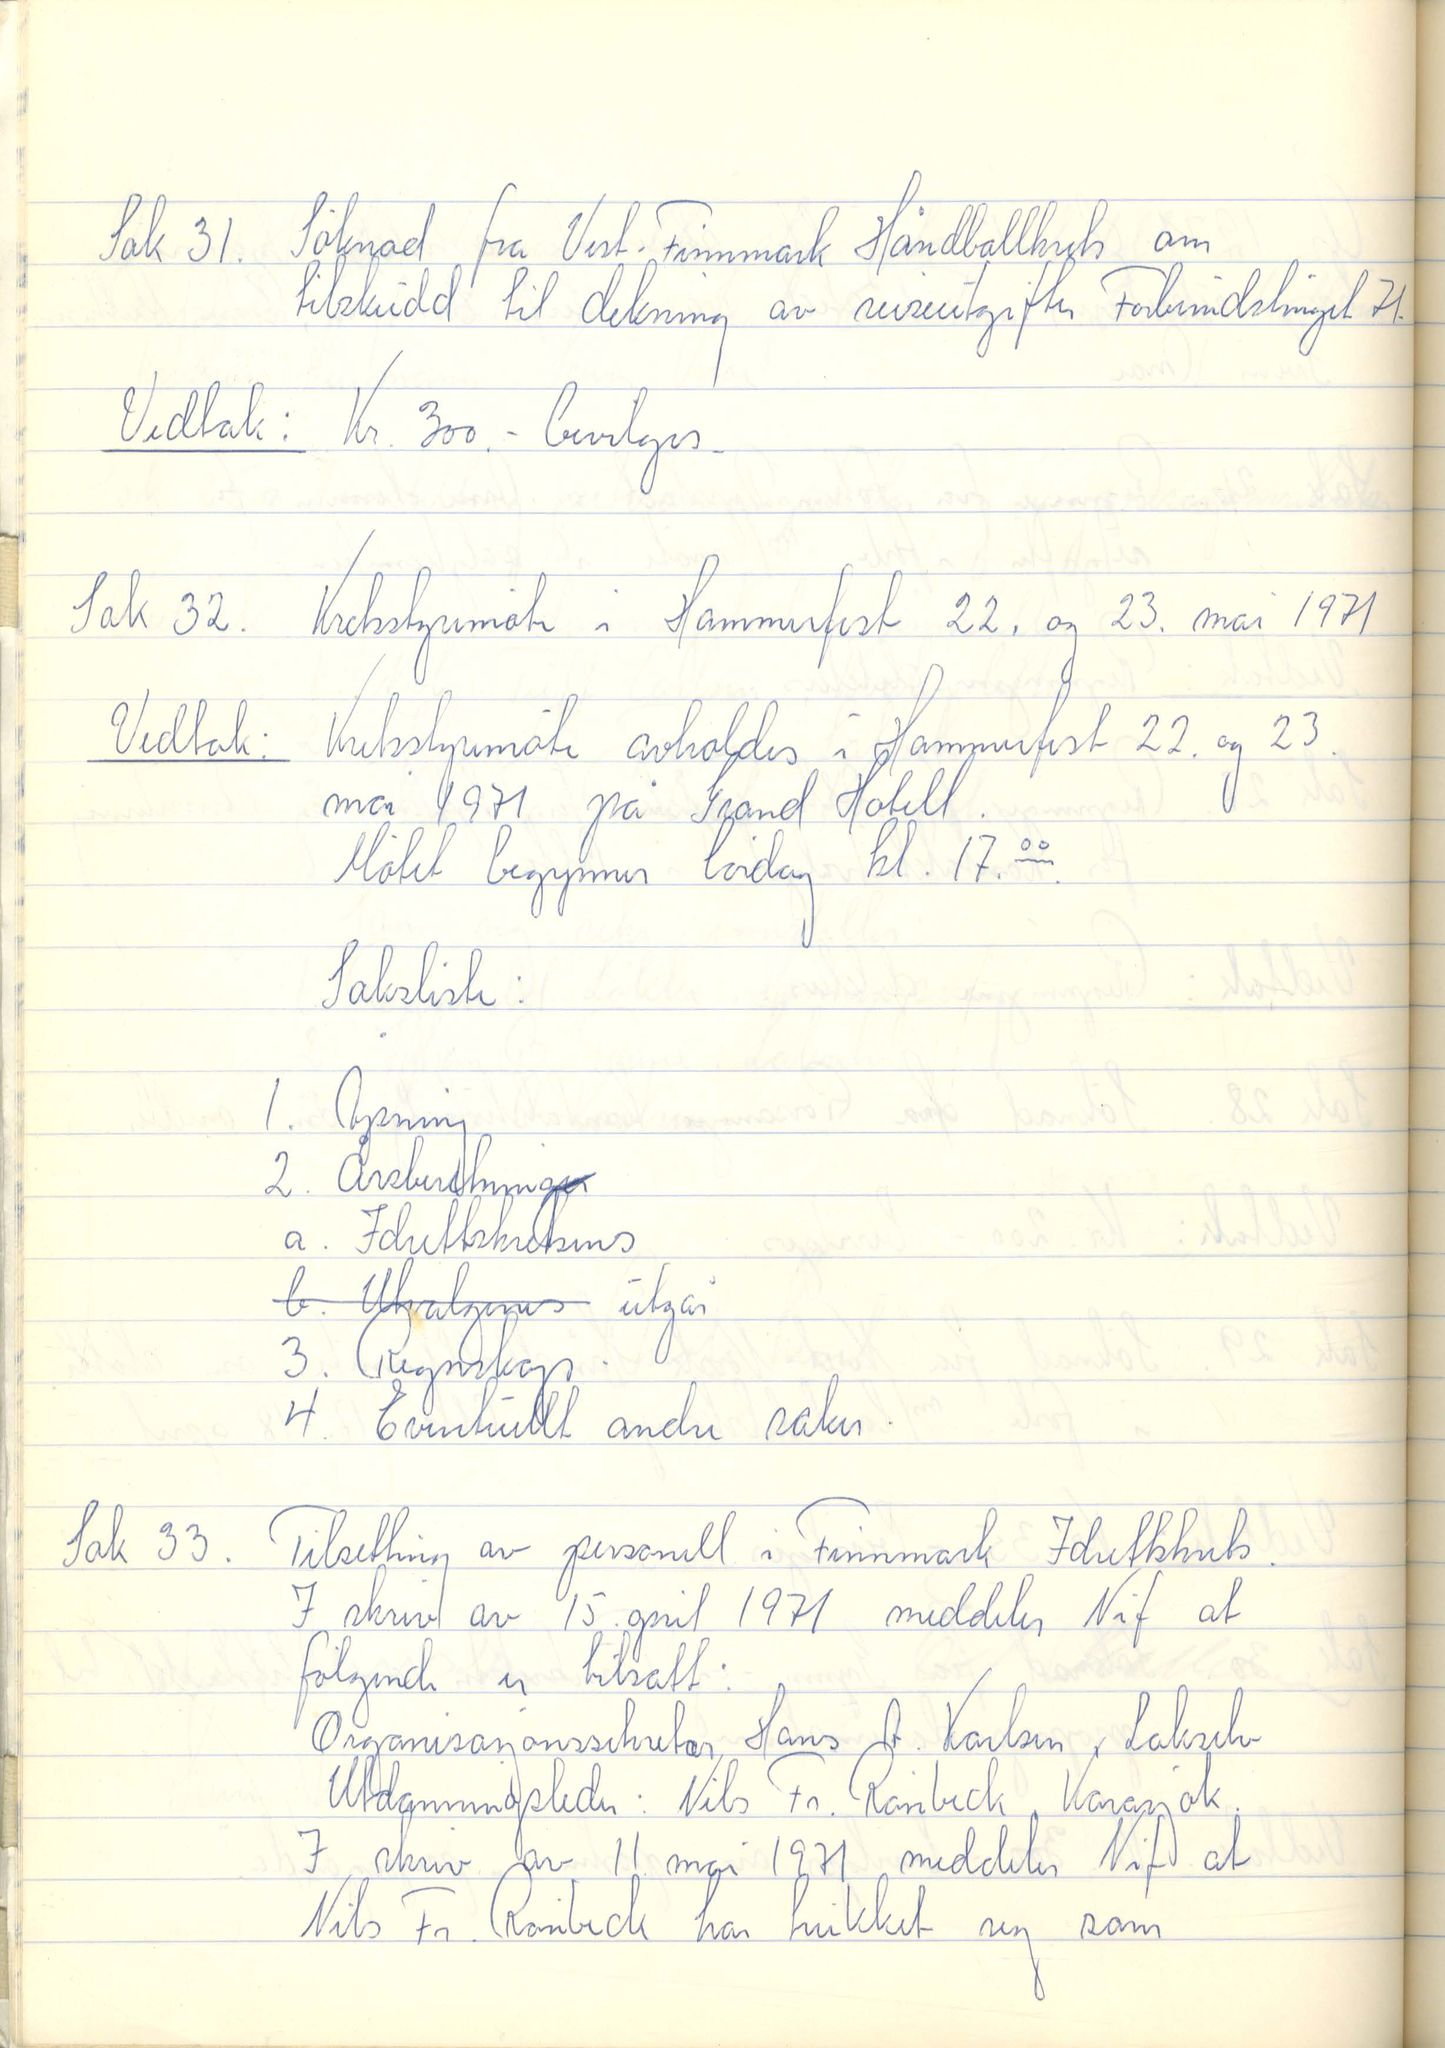 Sak 31. Söknad fra Vest-Finnmark Håndballkrets om
tilskudd til dekning av reiseutgifter Forbundstinget 71.
Vedtak: Kr. 300.- bevilges.
Sak 32. Kretsstyremöte i Hammerfest 22. og 23. mai 1971
Vedtak: Kretsstyremöte avholdes i Hammerfest 22. og 23.
mai 1971 på Grand Hotell.
Mötet begynner lördag kl. 17.00.
Saksliste:
1. Åpning
2. Årsberetning
a. Idrettskretsens
b. Utvalgenes utgår
3. Regnskap.
4. Eventuellt andre saker.
Sak 33. Tilsetting av personell i Finnmark Idrettskrets.
I skriv av 15. april 1971 meddeler Nif at
fölgende er tilsatt:
Organisasjonssekretær, Hans A. Karlsen, Lakselv
Utdanningsleder: Nils Fr. Rönbeck, Karasjok.
I skriv av 11. mai 1971 meddeler Nif at
Nils Fr. Rönbeck har trukket seg som